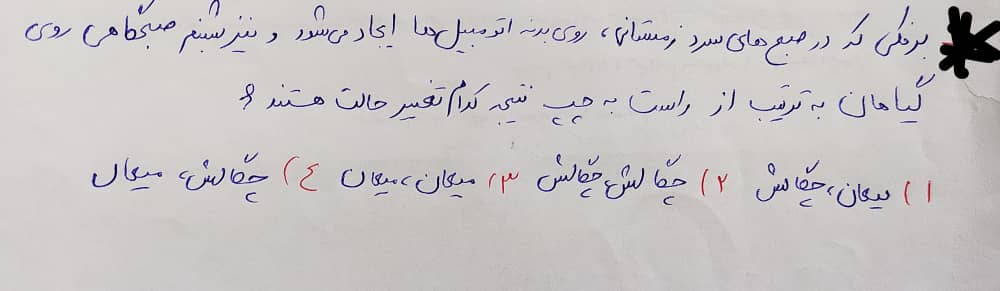 برفکی که در صبح‌های سرد زمستانی، روی بدنه اتومبیل‌ها ایجاد می‌شود و نیز شبنم صبحگاهی روی
گیاهان به ترتیب از راست به چپ نتیجه کدام تغییر حالت هستند؟
۱) میعان، چگالش ۲) چگالش، چگالش ۳) میعان، میعان ٤) چگالش، میعان